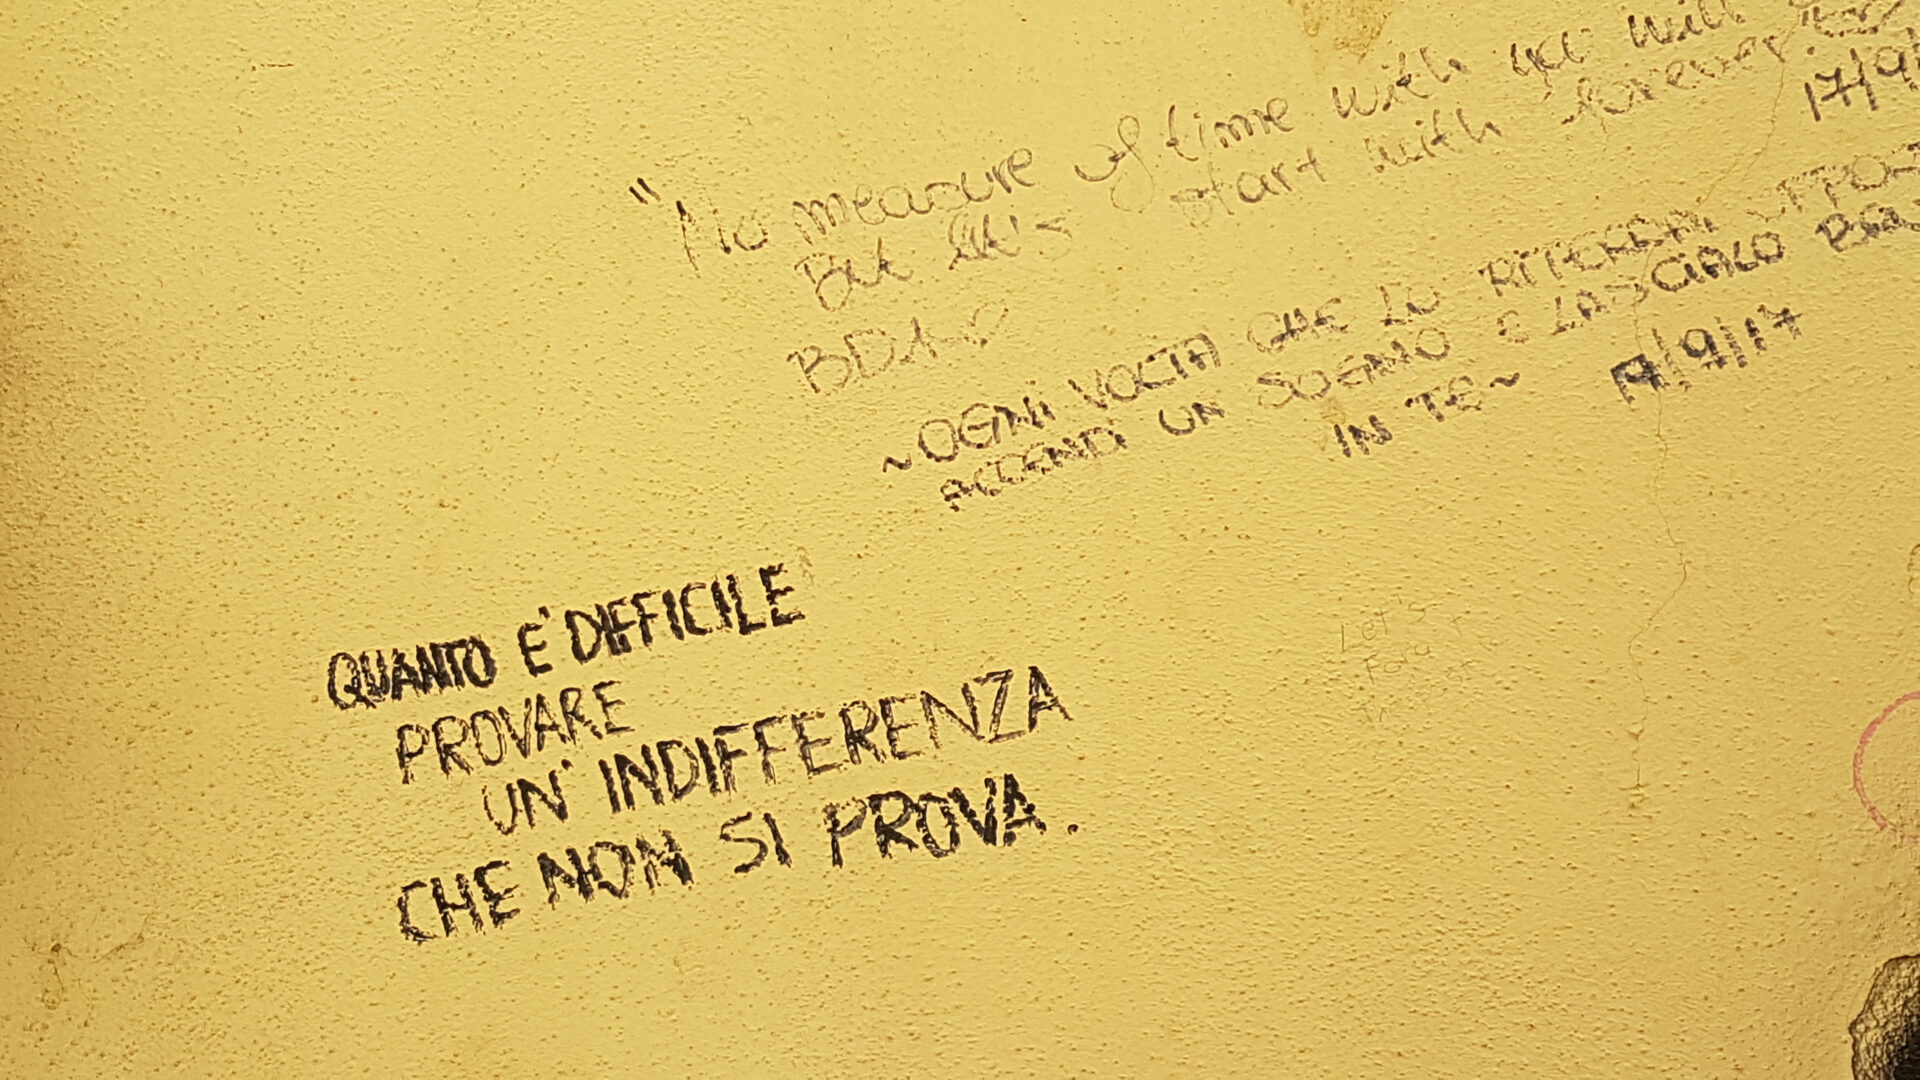 "No measure of time with you will
But let's start with forever
17/9/
BDA
~OGNI VOLTA CHE LO RITERRAI OPPO
ACCENDI UN SOGNO E LASCIALO
IN TE~ 17/9/17
QUANTO E' DIFFICILE
PROVARE
UN' INDIFFERENZA
CHE NON SI PROVA.
Let's